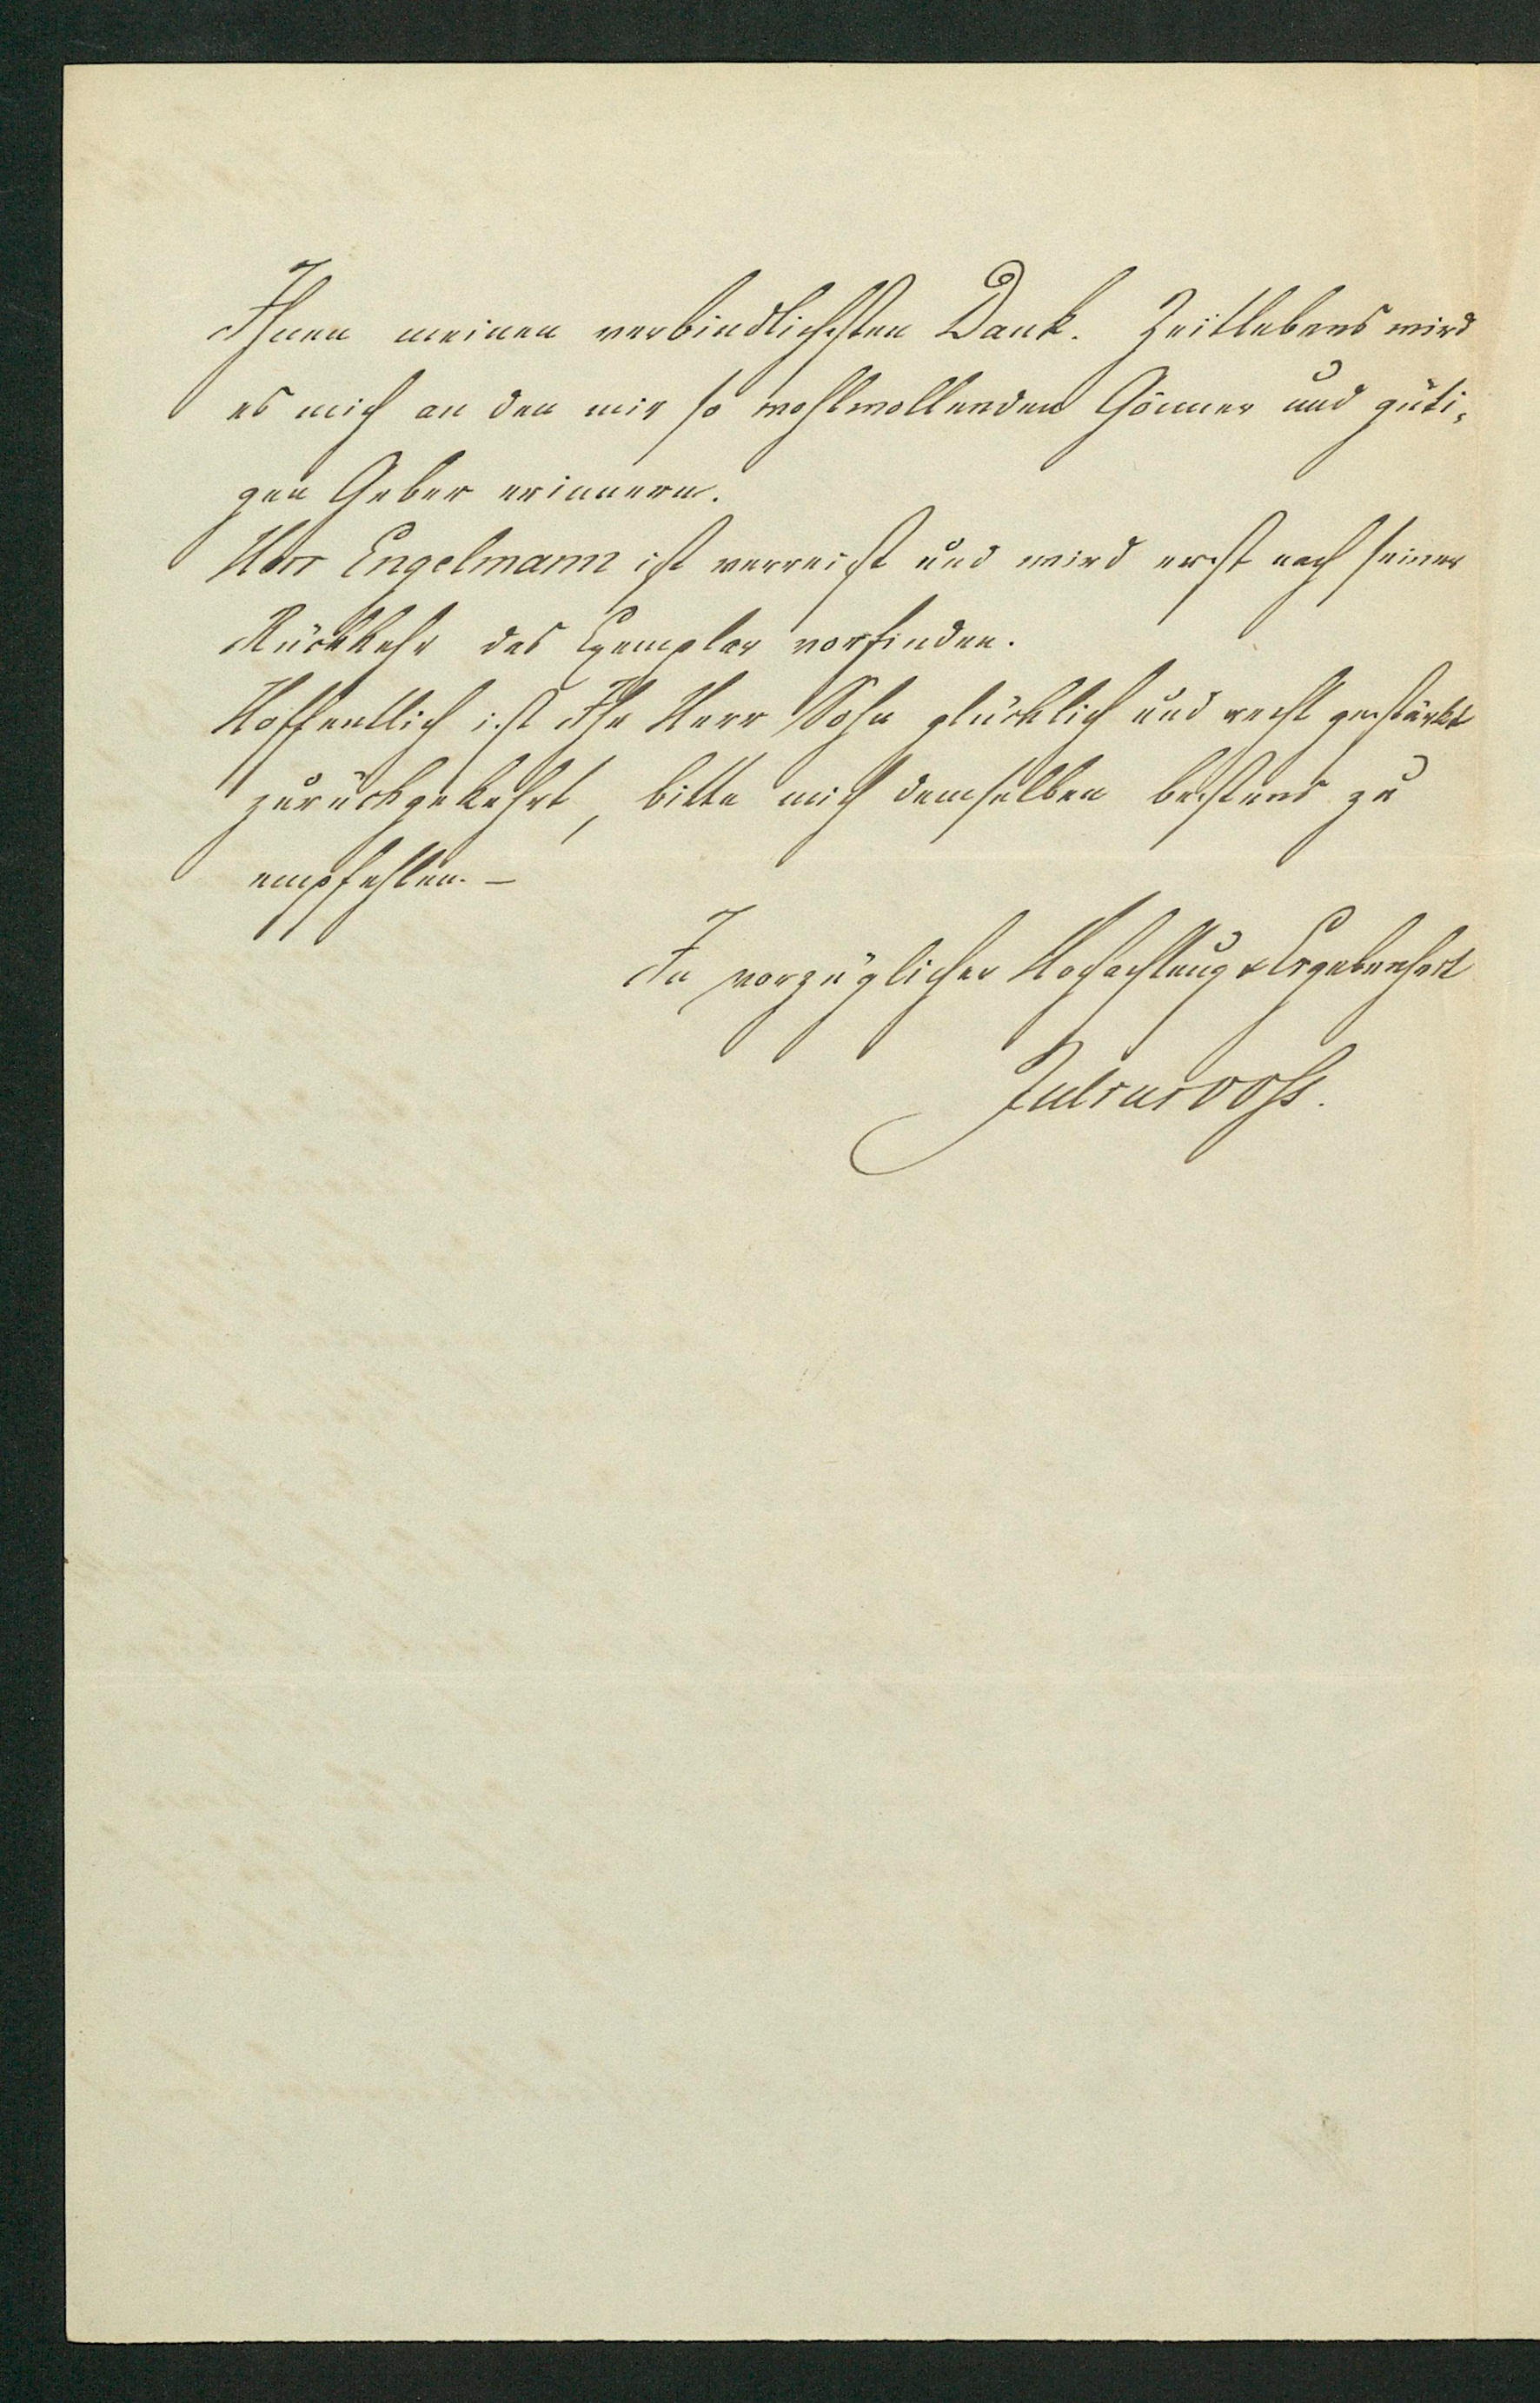 Ihnen meinen verbindlichsten Dank. Zeitlebens wird
es mich an den mir so wohlwollenden Gönner und güti-
gen Geber erinnern.
Herr Engelmann ist verreist und wird erst nach seiner
Rückkehr das Exemplar vorfinden.
Hoffentlich ist Ihr Herr Sohn glücklich und recht gestärkt
zurückgekehrt, bitte mich demselben bestens zu
empfehlen. –
In vorzüglicher Hochachtung & Ergebenheit
Julius Voss.